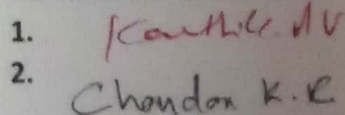 1. Karthik. A V
2. Chandan K. R